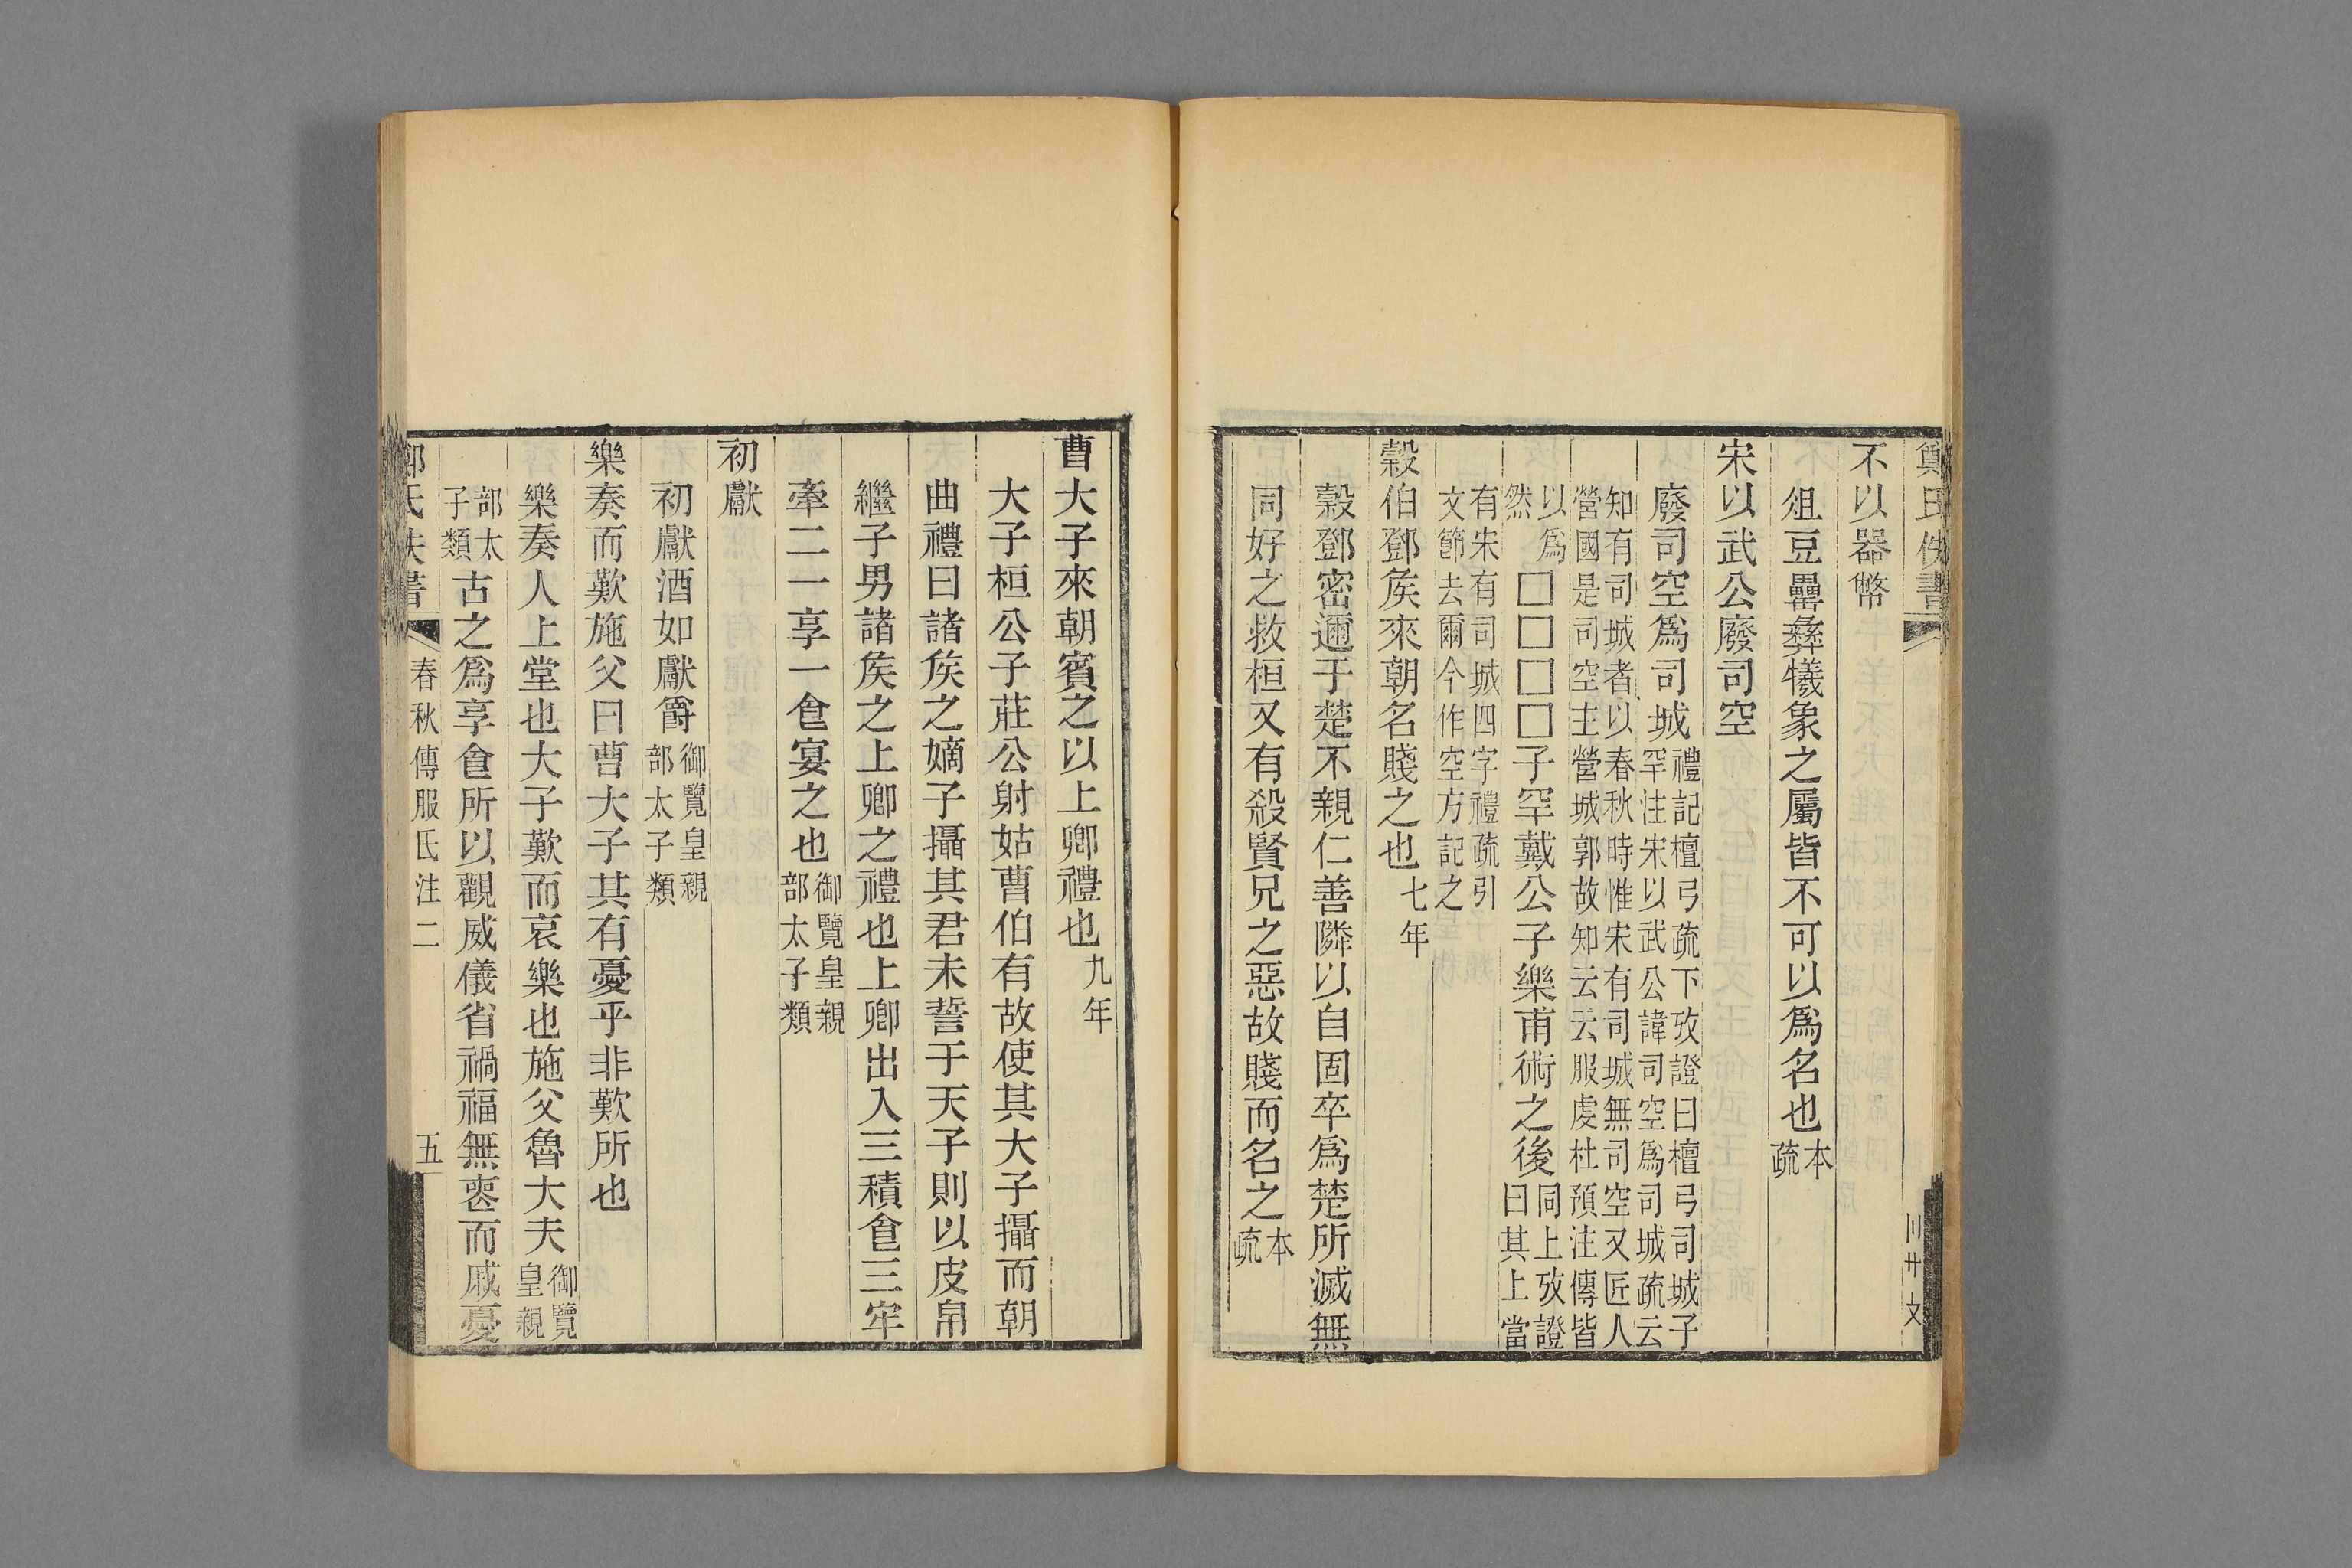 鄭氏佚書
不以器幣
俎豆罍彝犧象之屬皆不可以爲名也本疏
宋以武公廢司空
廢司空爲司城禮記檀弓疏下攷證曰檀弓司城子罕注宋以武公諱司空爲司城疏云
知有司城者以春秋時惟宋有司城無司空又匠人營國是司空主營城郭故知云云服虔杜預注傳皆
以爲然□□□□子罕戴公子樂甫術之後同上攷證曰其上當
有宋有司城四字禮疏引文節去爾今作空方記之
穀伯鄧矦來朝名賤之也七年
穀鄧密邇于楚不親仁善隣以自固卒爲楚所滅無
同好之救桓又有殺賢兄之惡故賤而名之本疏
曹大子來朝賓之以上卿禮也九年
大子桓公子莊公射姑曹伯有故使其大子攝而朝
曲禮曰諸矦之嫡子攝其君未誓于天子則以皮帛
繼子男諸矦之上卿之禮也上卿出入三積食三牢
牽二一享一食宴之也御覽皇親部太子類
初獻
初獻酒如獻爵御覽皇親部太子類
樂奏而歎施父曰曹大子其有憂乎非歎所也
樂奏人上堂也大子歎而哀樂也施父魯大夫御覽皇親
部太子類古之爲享食所以觀威儀省禍福無喪而戚憂
鄭氏佚書 春秋傳服氏注二 五